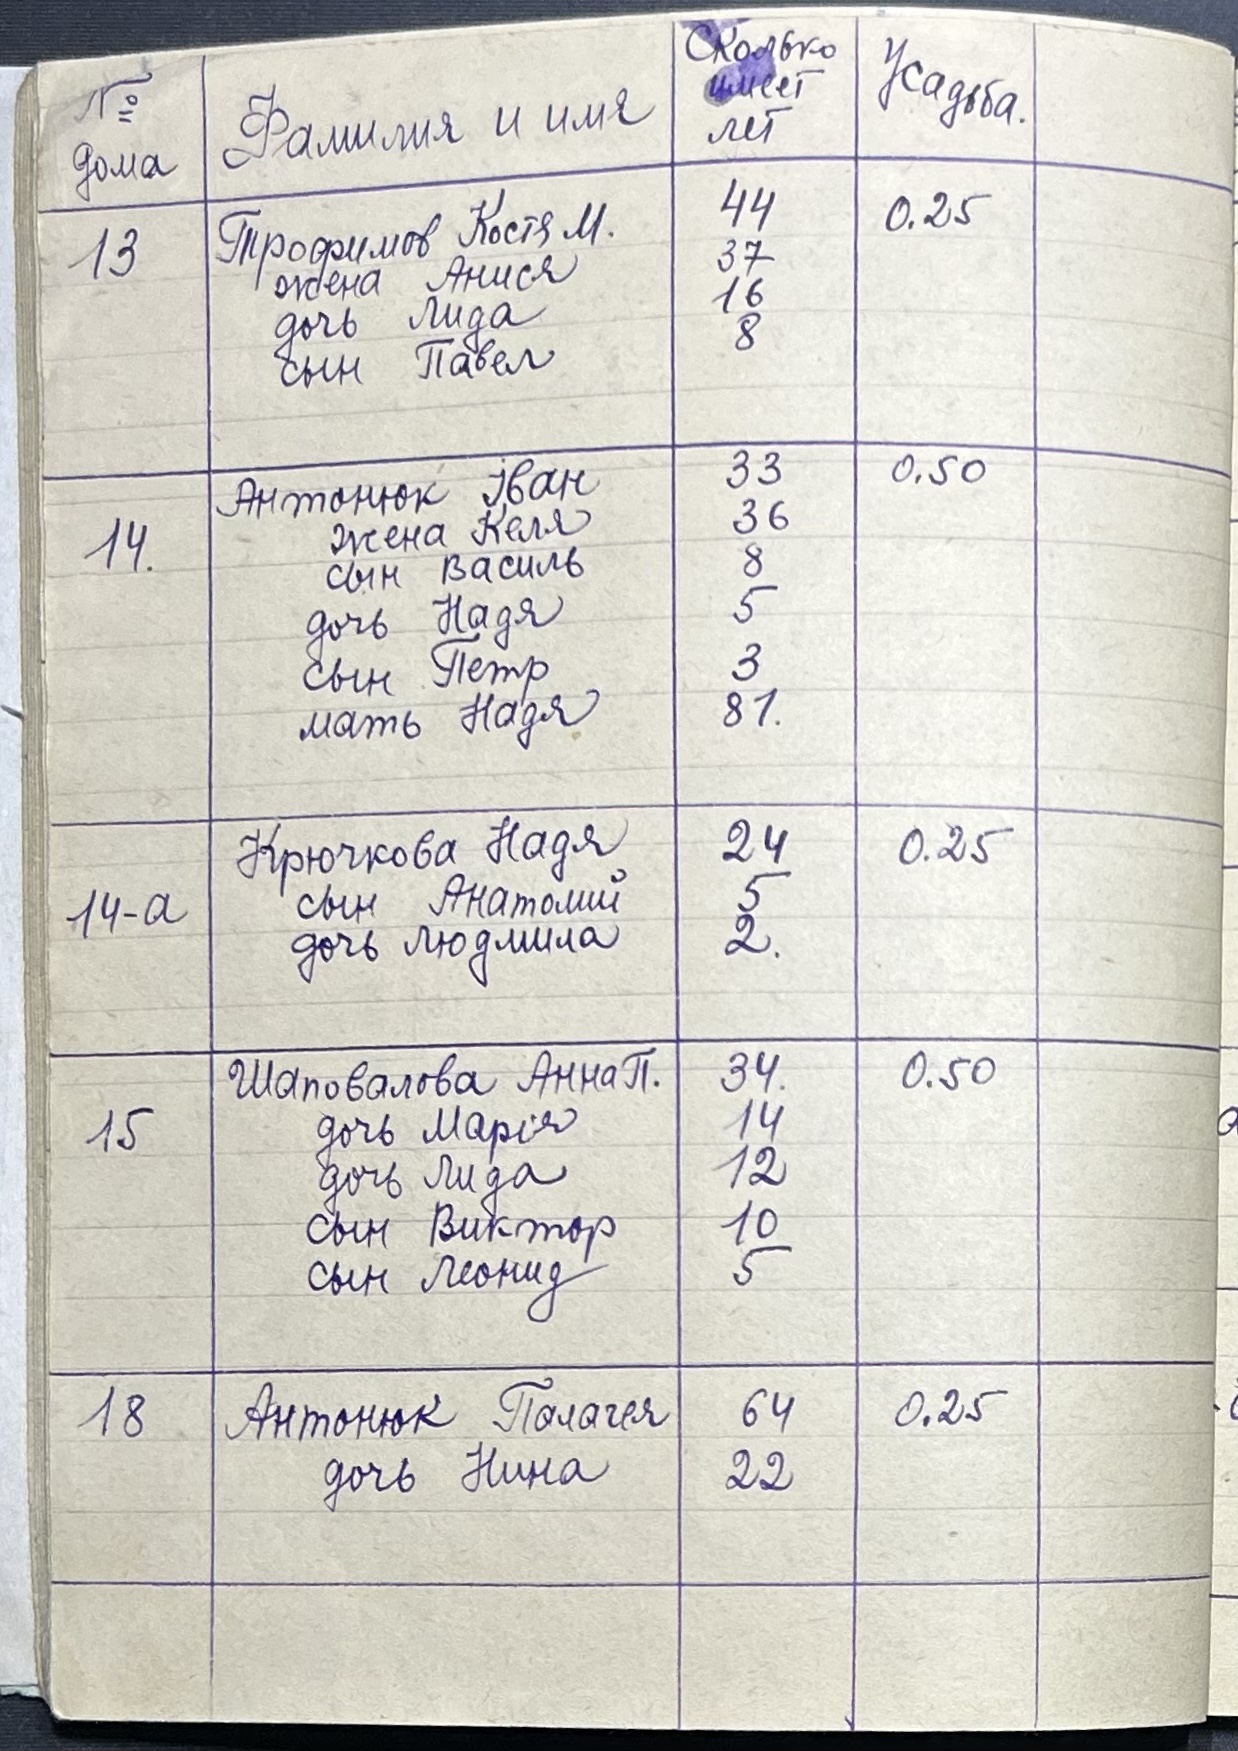 № дома | Фамилия и имя | Сколько имеет лет | Усадьба.
13 | Трофимов Костя М. | 44 | 0.25
жена Анися | 37
дочь Лида | 16
сын Павел | 8
14. | Антонюк Іван | 33 | 0.50
жена Келя | 36
сын Василь | 8
дочь Надя | 5
сын Петр | 3
мать Надя | 81.
14-а | Крючкова Надя | 24 | 0.25
сын Анатолий | 5
дочь Людмила | 2.
15 | Шаповалова Анна П. | 34. | 0.50
дочь Марія | 14
дочь Лида | 12
сын Виктор | 10
сын Леонид | 5
18 | Антонюк Палагея | 64 | 0.25
дочь Нина | 22